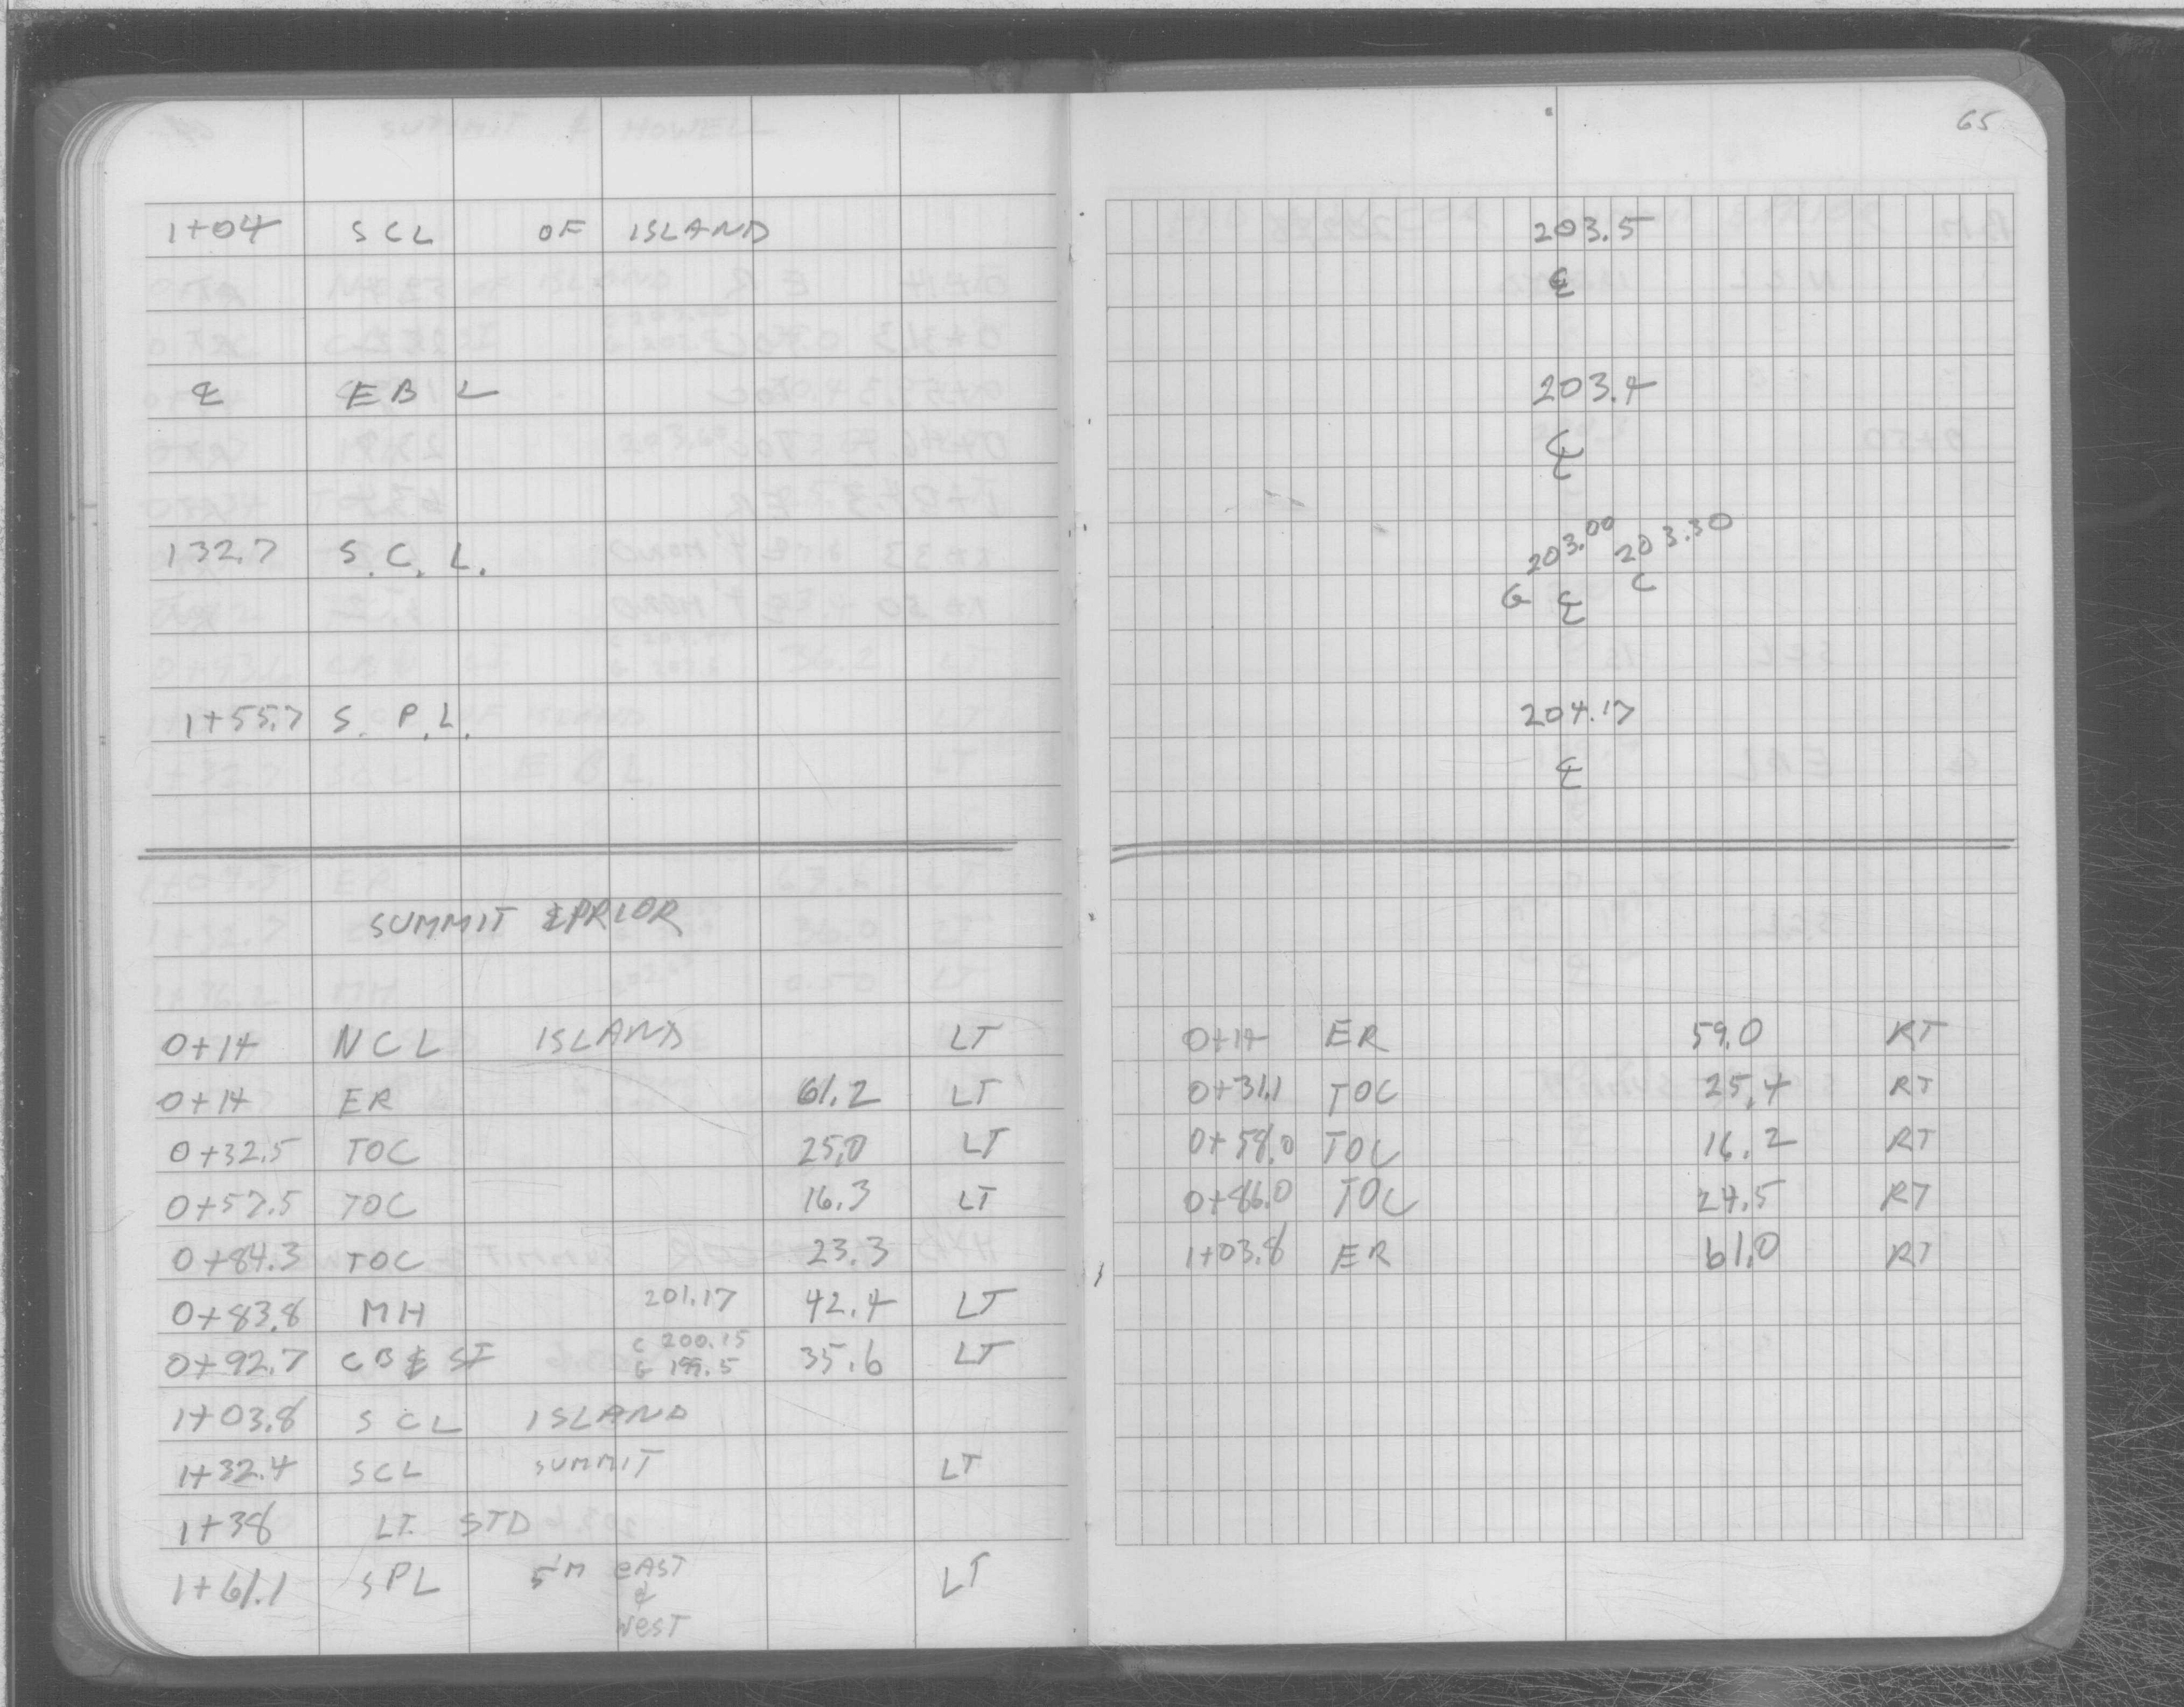 65
1+04 SCL OF ISLAND
℄ EBL
132.7 S.C.L.
1+55.7 S.P.L.
SUMMIT & PRIOR
0+14 NCL ISLAND LT
0+14 ER 61.2 LT
0+32.5 TOC 25.0 LT
0+57.5 TOC 16.3 LT
0+84.3 TOC 23.3
0+83.8 MH 201.17 42.4 LT
0+92.7 CB & SI C 200.15 G 199.5 35.6 LT
1+03.8 SCL ISLAND
1+32.4 SCL SUMMIT LT
1+38 LT. STD
1+61.1 SPL 5'M eAST & WeST LT
203.5
℄
203.4
℄
203.00 203.30
G ℄ C
204.17
℄
0+14 ER 59.0 RT
0+31.1 TOC 25.4 RT
0+58.0 TOC 16.2 RT
0+86.0 TOC 24.5 RT
1+03.8 ER 61.0 RT